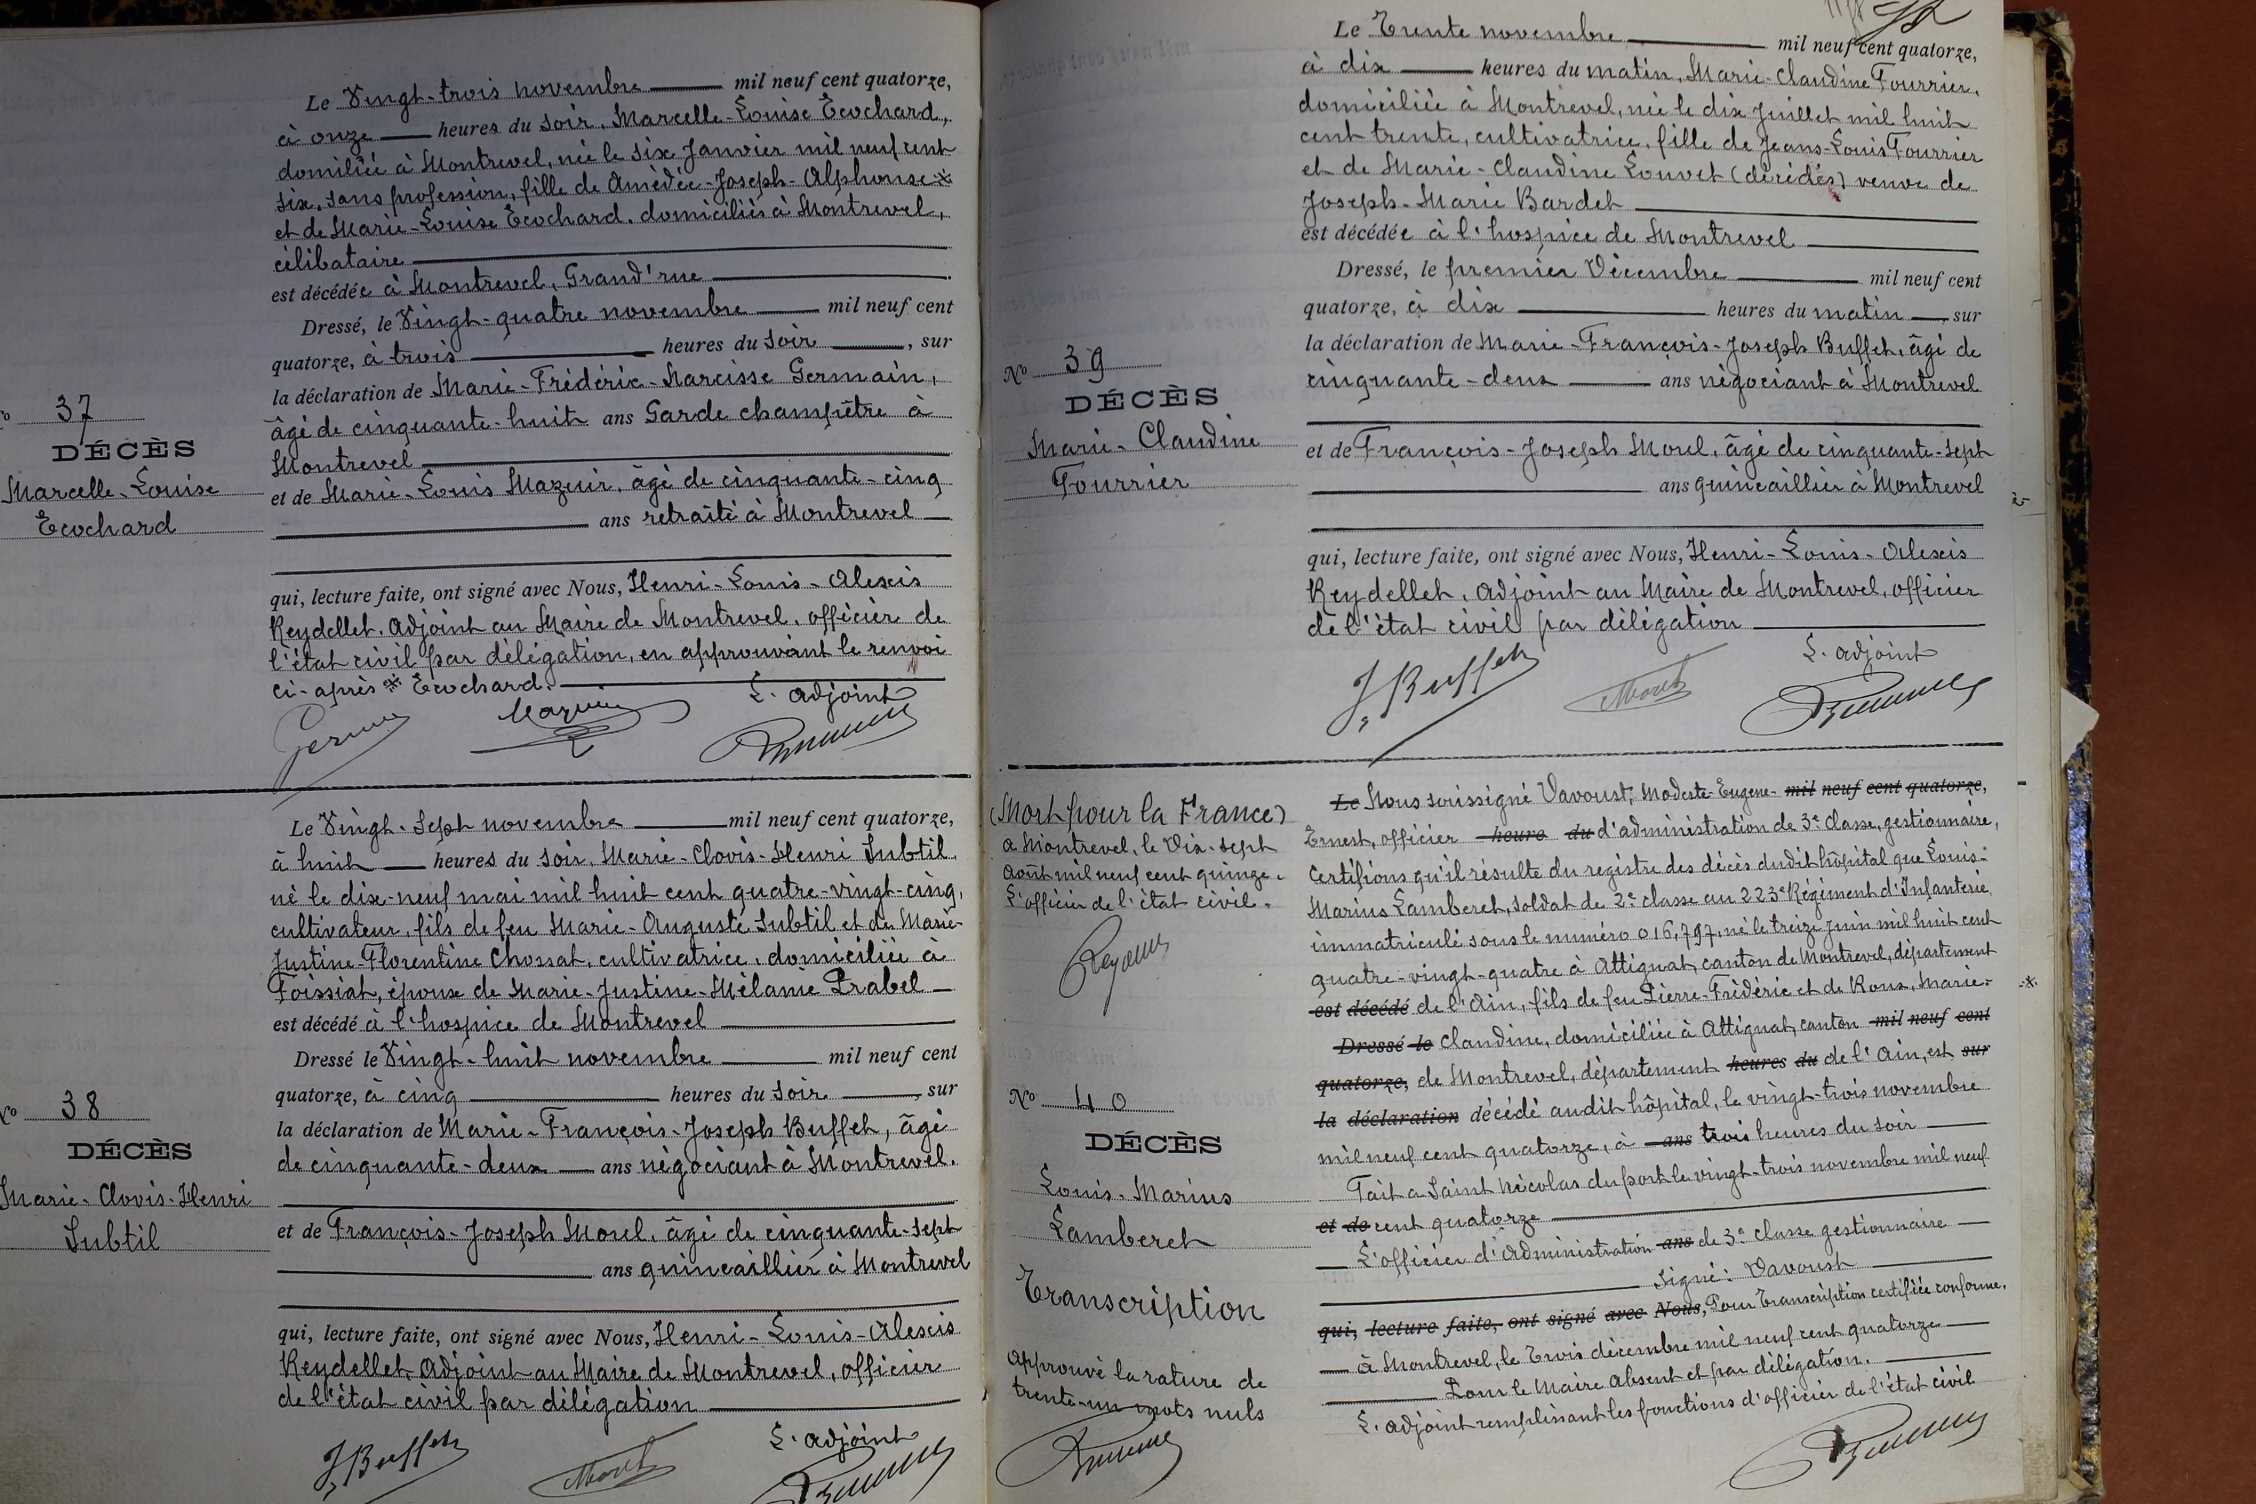 Le Vingt-trois novembre mil neuf cent quatorze,
à onze heures du soir, Marcelle-Louise Ecochard,
domiliée à Montrevel, née le six Janvier mil neuf cent
six, sans profession, fille de Amédée-Joseph-Alphonse ※
et de Marie-Louise Ecochard, domiciliés à Montrevel,
célibataire
est décédée à Montrevel, Grand'rue
Dressé, le Vingt-quatre novembre mil neuf cent
quatorze, à trois heures du soir, sur
la déclaration de Marie-Frédéric-Narcisse Germain,
âgé de cinquante-huit ans Garde champêtre à
Montrevel
et de Marie-Louis Mazuir, âgé de cinquante-cinq
ans retraité à Montrevel
qui, lecture faite, ont signé avec Nous, Henri-Louis-Alexis
Reydellet, Adjoint au Maire de Montrevel, officier de
l'état civil par délégation, en approuvant le renvoi
ci-après ※ Ecochard.
L. adjoint
Germain
Mazuir
No 37
DÉCÈS
Marcelle-Louise
Ecochard
Le Vingt-Sept novembre mil neuf cent quatorze,
à huit heures du soir, Marie-Clovis-Henri Subtil,
né le dix-neuf mai mil huit cent quatre-vingt-cinq,
cultivateur, fils de feu Marie-Auguste Subtil et de Marie-
Justine-Florentine Chossat, cultivatrice, domiciliée à
Foissiat, époux de Marie-Justine-Mélanie Prabel
est décédé à l'hospice de Montrevel
Dressé le Vingt-huit novembre mil neuf cent
quatorze, à cinq heures du soir, sur
la déclaration de Marie-François-Joseph Buffet, âgé
de cinquante-deux ans négociant à Montrevel.
et de François-Joseph Morel, âgé de cinquante-sept
ans quincaillier à Montrevel
qui, lecture faite, ont signé avec Nous, Henri-Louis-Alexis
Reydellet, Adjoint au Maire de Montrevel, officier
de l'état civil par délégation
L. adjoint
J Buffet
Morel
No 38
DÉCÈS
Marie-Clovis-Henri
Subtil
Le Trente novembre mil neuf cent quatorze,
à dix heures du matin, Marie-Claudine Fourrier,
domiciliée à Montrevel, née le dix Juillet mil huit
cent trente, cultivatrice, fille de Jeans-Louis Fourrier
et de Marie-Claudine Louvet (décédés) veuve de
Joseph-Marie Bardet
est décédée à l'hospice de Montrevel
Dressé, le premier Décembre mil neuf cent
quatorze, à dix heures du matin, sur
la déclaration de Marie-François-Joseph Buffet, âgé de
cinquante-deux ans négociant à Montrevel
et de François-Joseph Morel, âgé de cinquante-sept
ans quincaillier à Montrevel
qui, lecture faite, ont signé avec Nous, Henri-Louis-Alexis
Reydellet, Adjoint au Maire de Montrevel, officier
de l'état civil par délégation
L. adjoint
J Buffet
Morel
No 39
DÉCÈS
Marie-Claudine
Fourrier
Le Nous soussigné Davoust, Modeste-Eugène- mil neuf cent quatorze,
Ernest, officier heure du d'administration de 3e classe, gestionnaire,
Certifions qu'il résulte du registre des décès dudit hôpital que Louis-
Marius Lamberet, soldat de 2e classe au 223e Régiment d'Infanterie
immatriculé sous le numéro 016,797, né le treize Juin mil huit cent
quatre-vingt-quatre à Attignat, canton de Montrevel, département
est décédé de l'Ain, fils de feu Pierre-Frédéric et de Roux, Marie-
Dressé le Claudine, domiciliée à Attignat, canton mil neuf cent
quatorze, de Montrevel, département heures du de l'Ain, est sur
la déclaration décédé audit hôpital, le vingt-trois novembre
mil neuf cent quatorze, à ans trois heures du soir
Fait a Saint Nicolas du port le vingt-trois novembre mil neuf
et de cent quatorze
L'officier d'Administration ans de 3e classe gestionnaire
Signé: Davoust
qui, lecture faite, ont signé avec Nous, Pour Transcription certifiée conforme,
à Montrevel, le Trois décembre mil neuf cent quatorze
Pour le Maire Absent et par délégation.
L. adjoint remplissant les fonctions d'officier de l'état civil
(Mort pour la France)
a Montrevel, le Dix-sept
Août mil neuf cent quinze.
L'officier de l'état civil.
No 40
DÉCÈS
Louis-Marius
Lamberet
Transcription
Approuvé la rature de
trente-un mots nuls